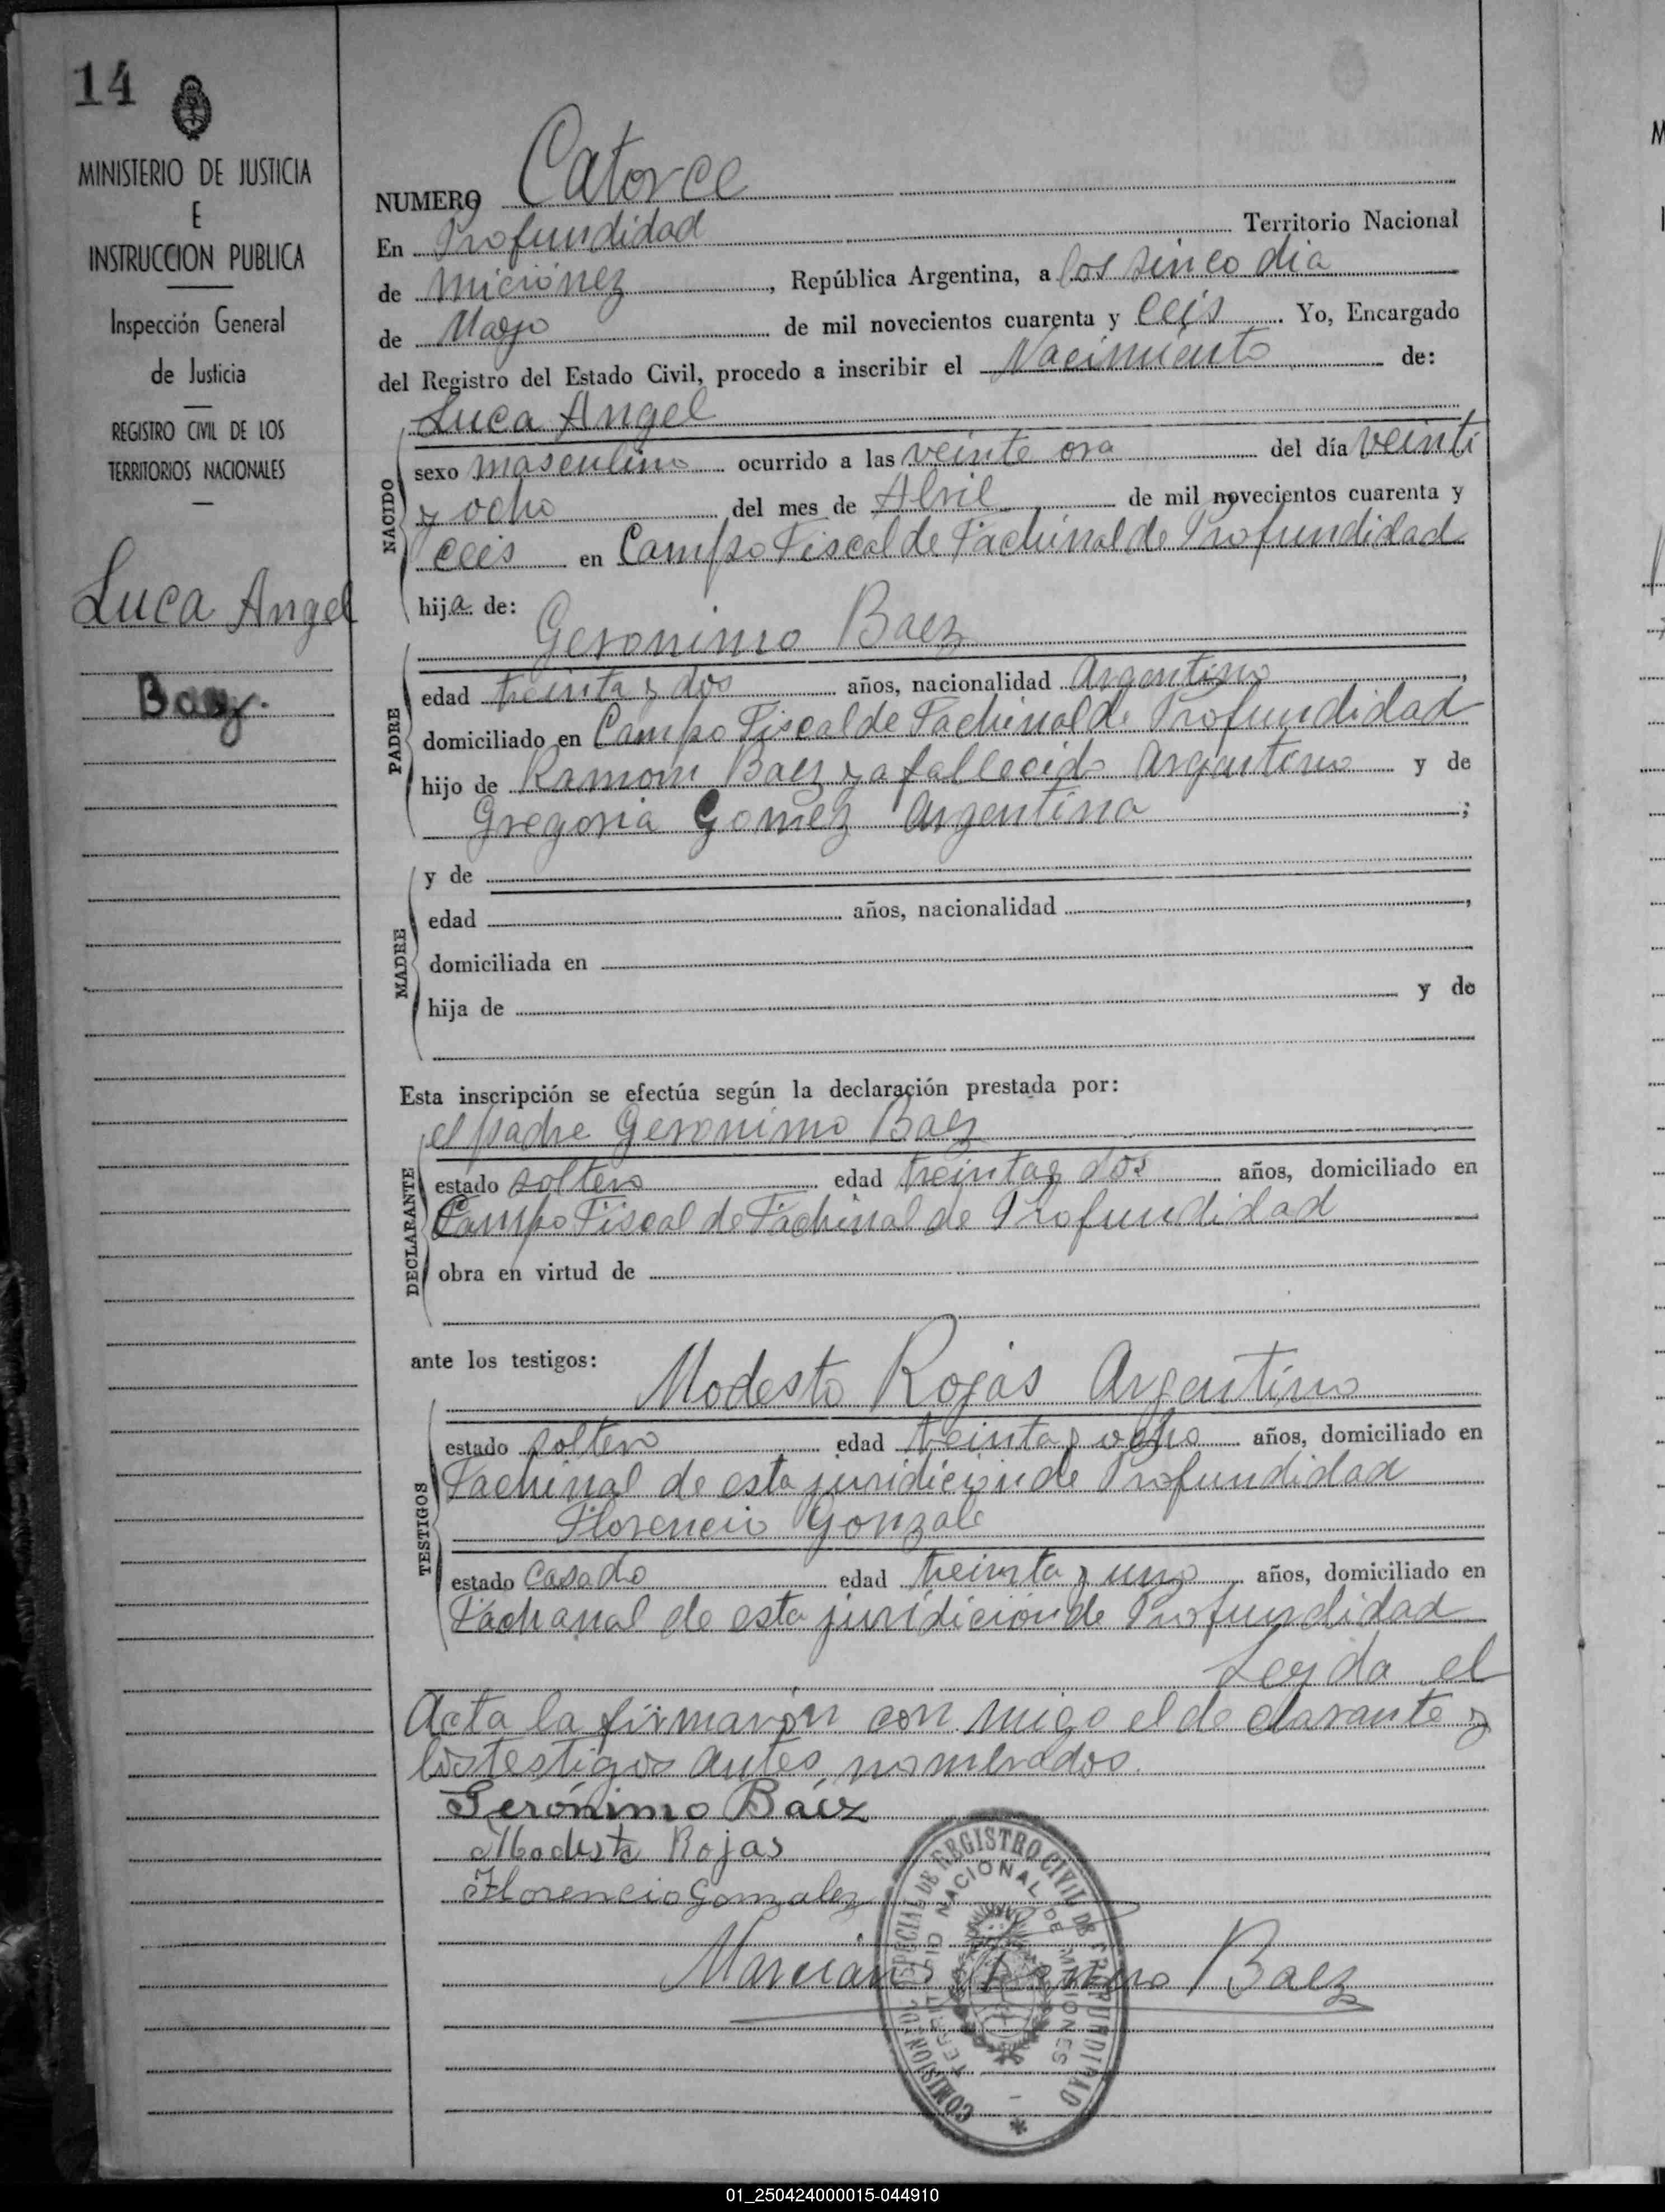 14
MINISTERIO DE JUSTICIA
E
INSTRUCCION PUBLICA
Inspección General
de Justicia
REGISTRO CIVIL DE LOS
TERRITORIOS NACIONALES
Luca Angel
Baez.
NUMERO Catorce
En Profundidad Territorio Nacional
de Miciónez, República Argentina, a los sinco dia
de Mayo de mil novecientos cuarenta y ceis. Yo, Encargado
del Registro del Estado Civil, procedo a inscribir el Nacimiento de:
Luca Angel
NACIDO
sexo masculino ocurrido a las veinte ora del día veinti
y ocho del mes de Abril de mil novecientos cuarenta y
ceis en Campo Fiscal de Fachinal de Profundidad
hija de:
Geronimo Baez
PADRE
edad treinta y dos años, nacionalidad Argentino,
domiciliado en Campo Fiscal de Fachinal de Profundidad
hijo de Ramom Baez ya fallecido Argentino y de
Gregoria Gomez Argentina;
MADRE
y de
edad años, nacionalidad,
domiciliada en
hija de y de
Esta inscripción se efectúa según la declaración prestada por:
el padre Geronimo Baez
DECLARANTE
estado soltero edad treinta y dos años, domiciliado en
Campo Fiscal de Fachinal de Profundidad
obra en virtud de
ante los testigos:
Modesto Rojas Argentino
TESTIGOS
estado soltero edad treinta y ocho años, domiciliado en
Fachinal de esta juridición de Profundidad
Florencio Gonzale
estado casado edad treinta y uno años, domiciliado en
Fachanal de esta juridición de Profundidad
Leyda el
Acta la firmarón con migo el de clarante y
los testigos antes nombrados.
Gerónimo Báez
Modesto Rojas
Florencio Gonzalez
Marcián Baez
COMISION OL. ESPECIAL DE REGISTRO CIVIL DE PROFUNDIDAD
TERRITORIO NACIONAL DE MISIONES
01_250424000015-044910